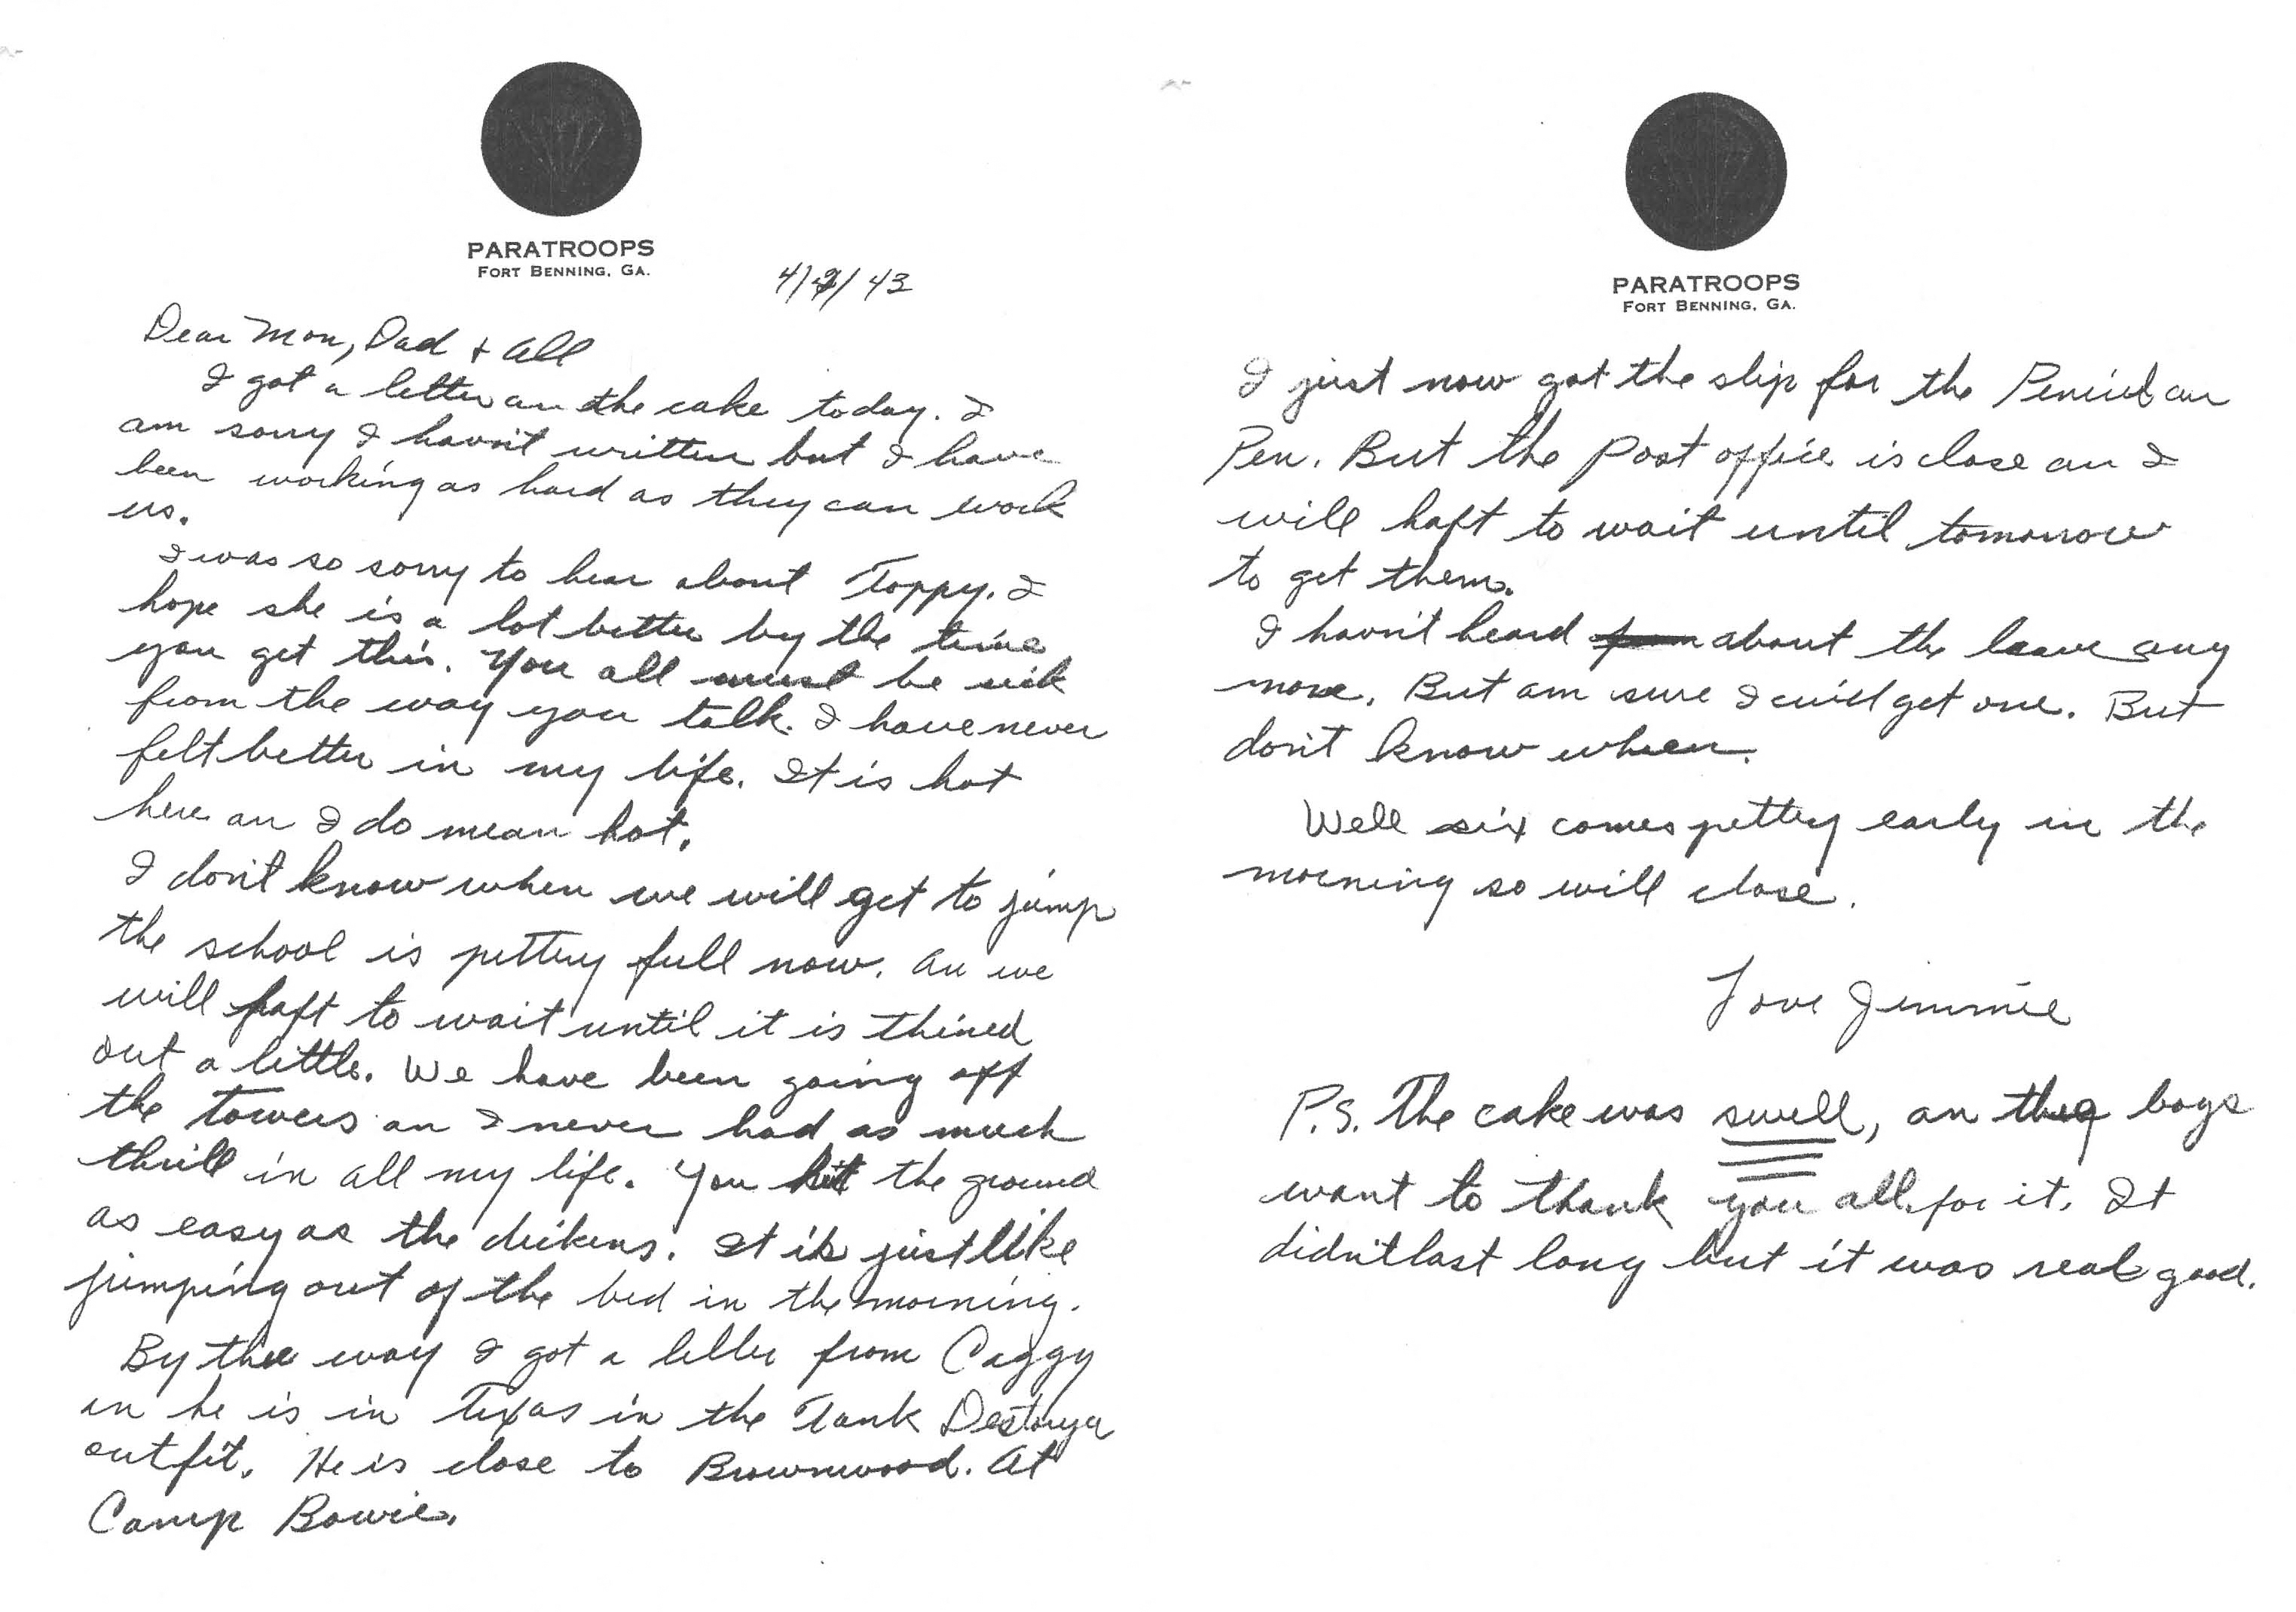 PARATROOPS
FORT BENNING, GA.
4/2/43
Dear Mom, Dad + All
I got a letter an the cake today. I
am sorry I havn't written but I have
been working as hard as they can work
us.
I was so sorry to hear about Toppy. I
hope she is a lot better by the time
you get this. You all must be sick
from the way you talk. I have never
felt better in my life. It is hot
here an I do mean hot.
I don't know when we will get to jump
the school is pettry full now. An we
will haft to wait until it is thined
out a little. We have been going off
the towers an I never had as much
thrill in all my life. You hit the ground
as easy as the dickens. It is just like
jumping out of the bed in the morning.
By the way I got a letter from Caggy
an he is in Texas in the Tank Destoryer
outfit. He is close to Brownwood. At
Camp Bowie.
PARATROOPS
FORT BENNING, GA.
I just now got the slip for the Pencil an
Pen. But the Post office is close an I
will haft to wait until tomorrow
to get them.
I havn't heard about the leave any
more. But am sure I will get one. But
don't know when.
Well six comes pettry early in the
morning so will close.
Love Jimmie
P.S. The cake was swell, an the boys
want to thank you all for it. It
didn't last long but it was real good.